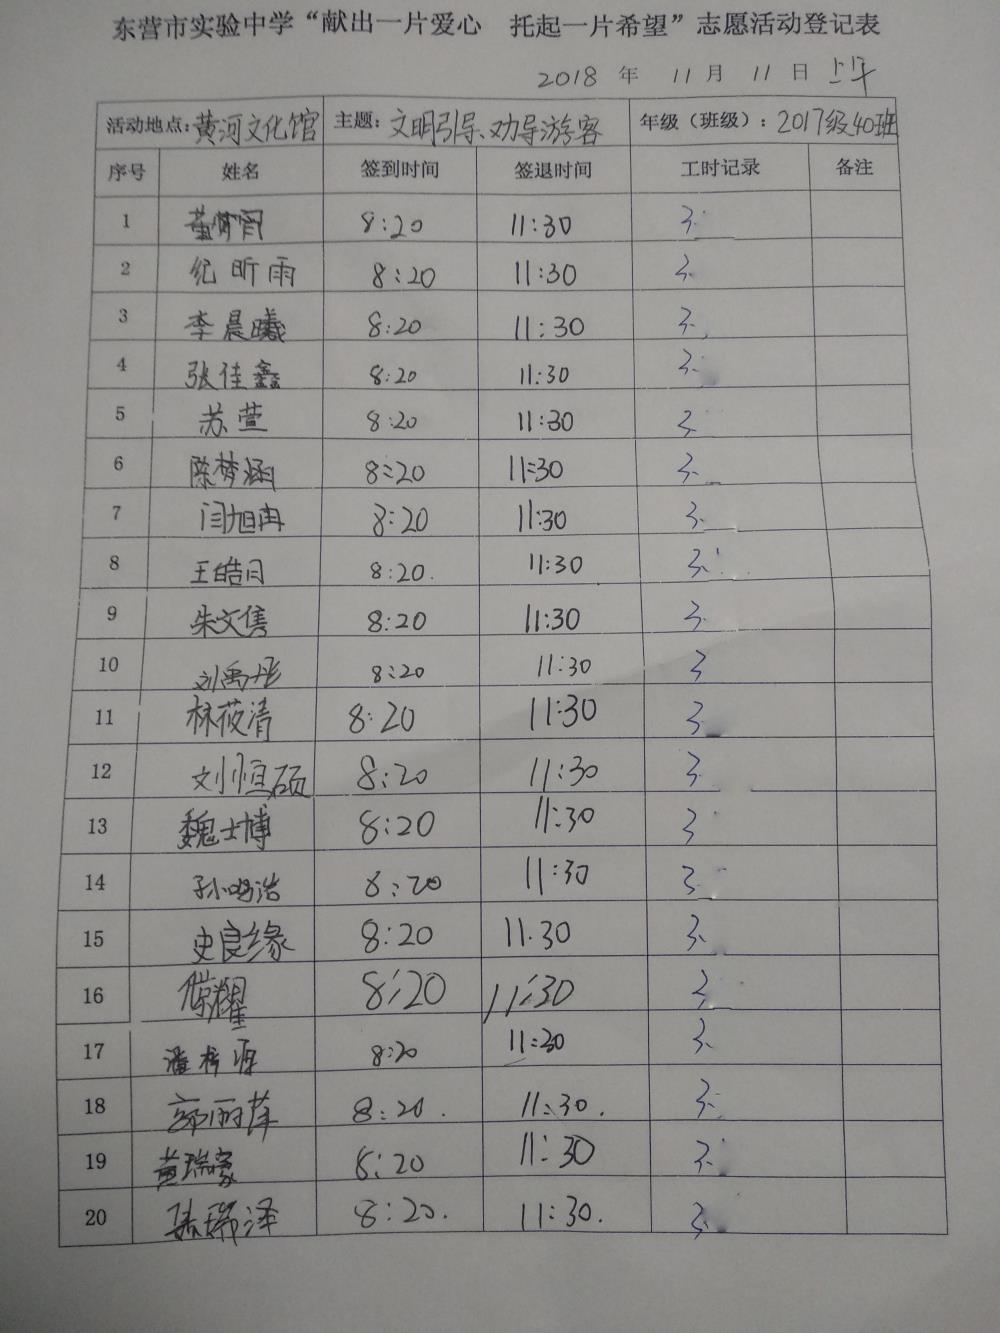 东营市实验中学“献出一片爱心 托起一片希望”志愿活动登记表
2018 年 11 月 11 日 上午
活动地点：黄河文化馆 主题：文明引导、劝导游客 年级（班级）：2017级40班
序号 姓名 签到时间 签退时间 工时记录 备注
1 8:20 11:30 3
2 纪昕雨 8:20 11:30 3
3 李晨曦 8:20 11:30 3
4 张佳鑫 8:20 11:30 3
5 苏萱 8:20 11:30 3
6 陈梦涵 8:20 11:30 3
7 闫旭冉 8:20 11:30 3
8 王皓月 8:20 11:30 3
9 朱文隽 8:20 11:30 3
10 刘禹彤 8:20 11:30 3
11 林莜清 8:20 11:30 3
12 刘恒硕 8:20 11:30 3
13 魏士博 8:20 11:30 3
14 孙鸣浩 8:20 11:30 3
15 史良缘 8:20 11.30 3
16 8:20 11:30 3
17 8:20 11:30 3
18 8:20. 11:30. 3
19 黄瑞豪 8:20 11:30 3
20 8:20. 11:30. 3